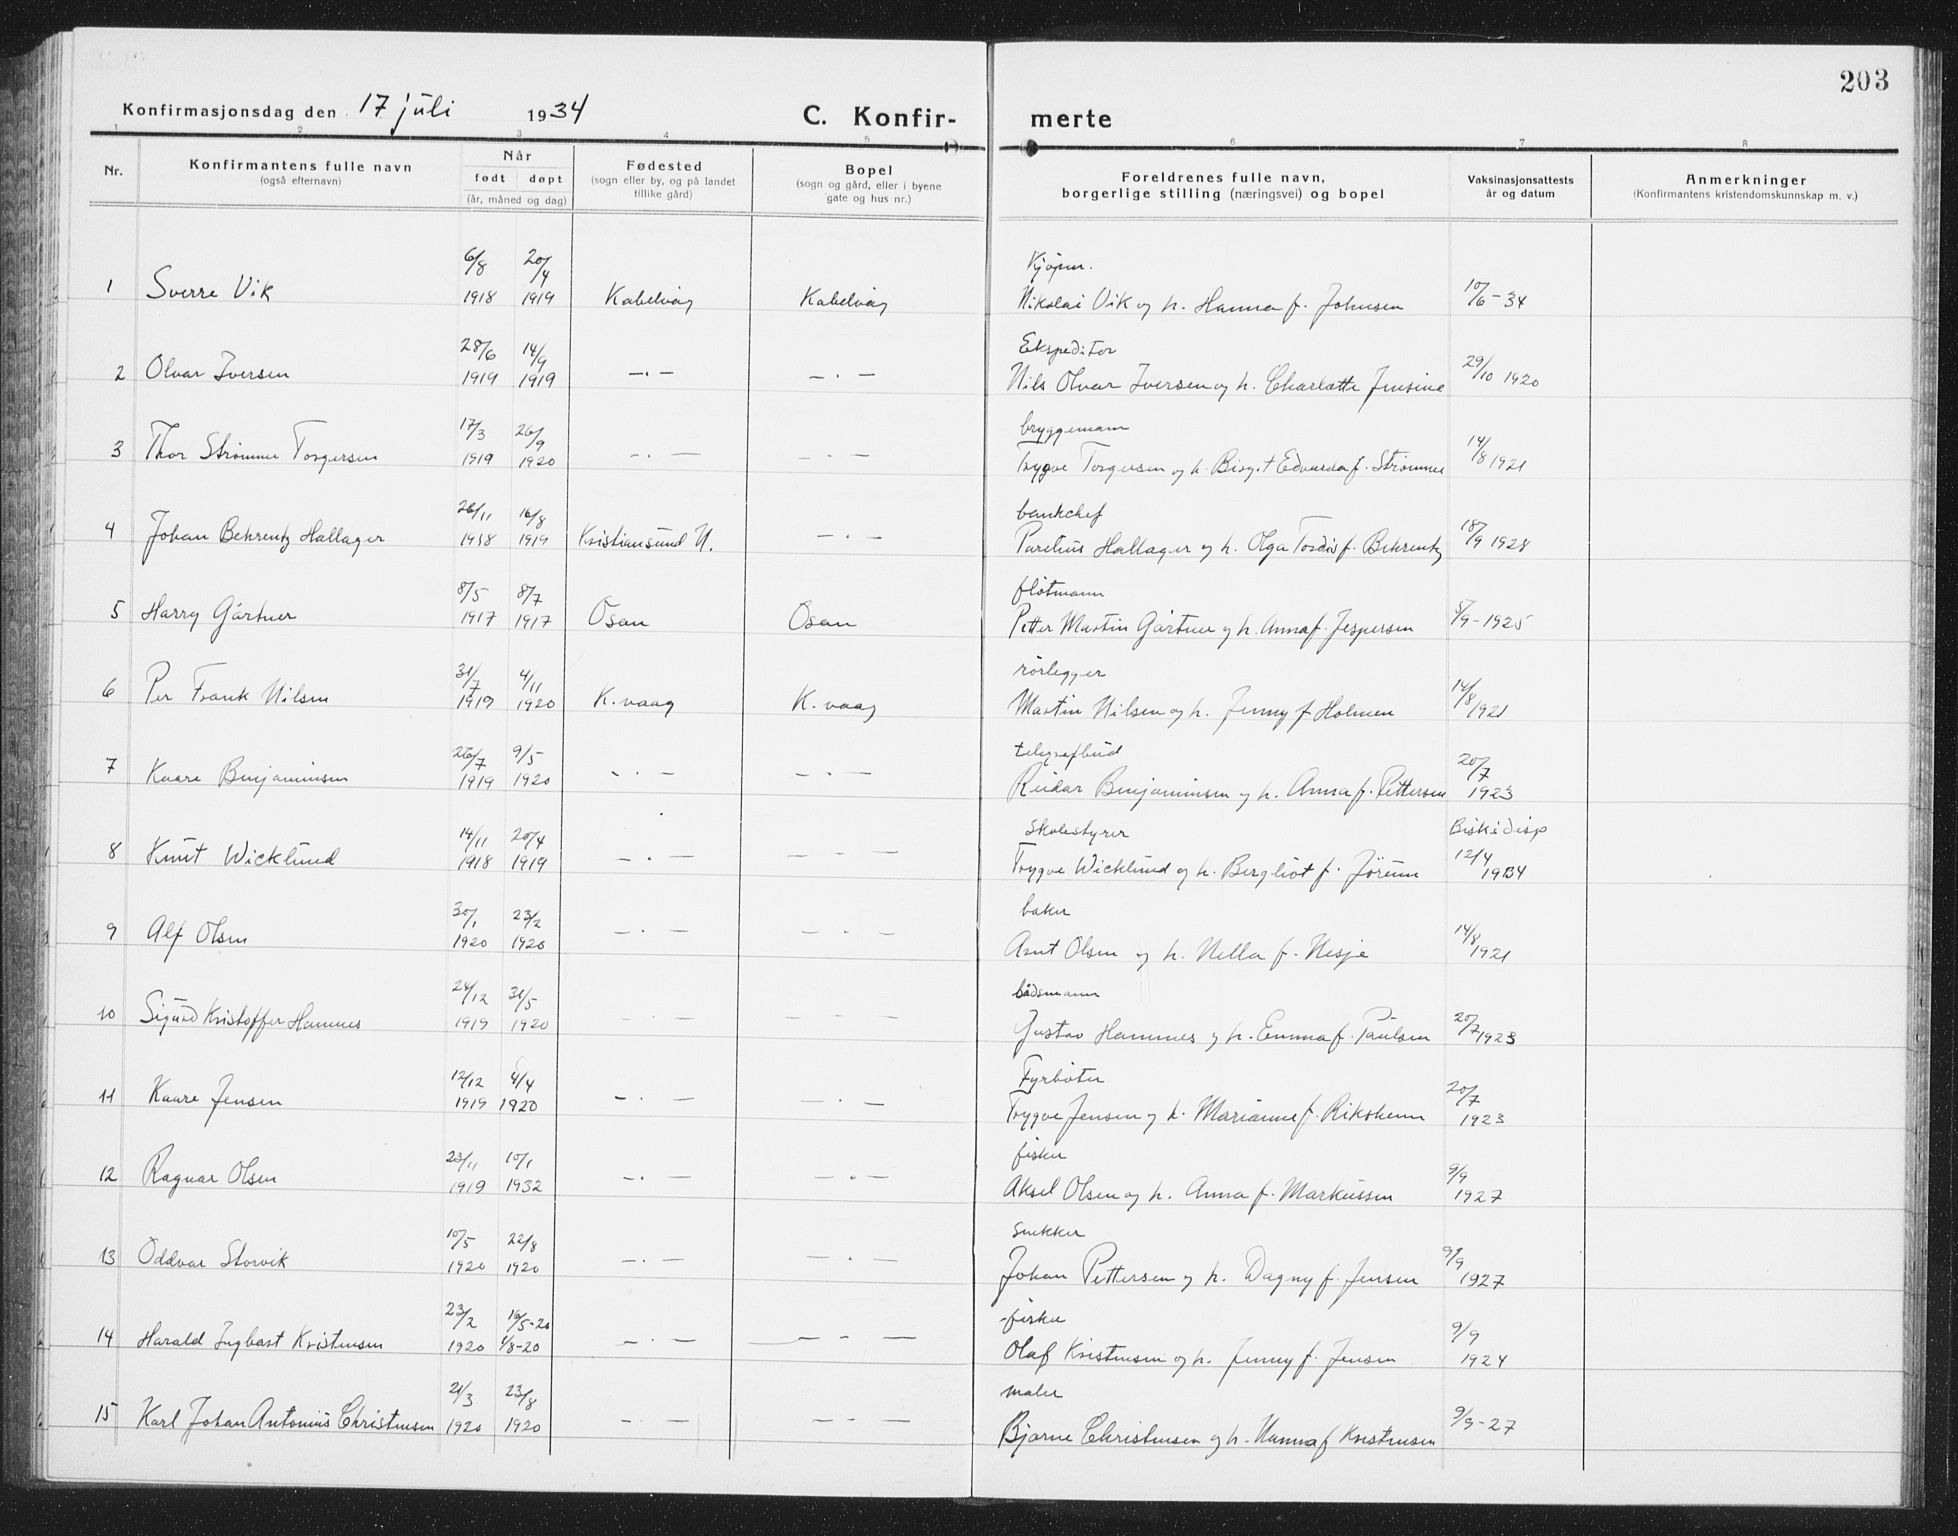 203
Konfirmasjonsdag den 17 juli 1934
C. Konfirmerte
1 2 3 4 5 6 7 8
Nr. Konfirmantens fulle navn (også efternavn) Når født døpt (år, måned og dag) Fødested (sogn eller by, og på landet tillike gård) Bopel (sogn og gård, eller i byene gate og hus nr.) Foreldrenes fulle navn, borgerlige stilling (næringsvei) og bopel Vaksinasjonsattests år og datum Anmerkninger (Konfirmantens kristendomskunnskap m. v.)
6/8 20/4 Kjøpm.
1 Sverre Vik 1918 1919 Kabelvåg Kabelvåg Nikolai Vik og h. Hanna f. Johnsen 10/6-34
28/6 14/9 Ekspeditor
2 Olvar Iversen 1919 1919 -.- -.- Nils Olvar Iversen og h. Charlotte Jensine 29/10 1920
17/3 26/9 bryggemann
3 Thor Strømme Torgersen 1919 1920 -.- -.- Trygve Torgersen og h. Birgit Edvarda f. Strømme 14/8 1921
26/11 16/8 bankchef
4 Johan Behrentz Hallager 1918 1919 Kristiansund N. -.- Parelius Hallager og h. Olga Tordis f. Behrentz 18/9 1928
8/5 8/7 fløtmann
5 Harry Gårtner 1917 1917 Osan Osan Petter Martin Gårtner og h. Anna f. Jespersen 5/9-1925
31/7 4/11 rørlegger
6 Per Frank Nilsen 1919 1920 K.vaag K.vaag Martin Nilsen og h. Jenny f Holmen 14/8 1921
26/7 9/5 telegrafbud
7 Kaare Benjaminsen 1919 1920 -.- -.- Reidar Benjaminsen og h. Anna f. Pettersen 20/7 1923
14/11 20/4 Skolestyrer Bisk. disp
8 Knut Wicklund 1918 1919 -.- -.- Trygve Wicklund og h. Bergliot f. Jørum 12/4 1934
30/1 23/2 baker
9 Alf Olsen 1920 1920 -.- -.- Arnt Olsen og h. Nella f. Nesje 14/8 1921
24/12 31/5 bådsmann
10 Sigurd Kristoffer Hamnes 1919 1920 -.- -.- Gustav Hamnes og h. Emma f. Paulsen 20/7 1923
12/12 4/4 Fyrbøter
11 Kaare Jensen 1919 1920 -.- -.- Trygve Jensen og h. Marianne f. Riksheim 20/7 1923
23/11 10/1 fisker
12 Ragnar Olsen 1919 1932 -.- -.- Aksel Olsen og h. Anna f. Markussen 9/9 1927
10/5 22/8 snekker
13 Oddvar Storvik 1920 1920 -.- -.- Johan Pettersen og h. Dagny f. Jensen 9/9 1927
23/2 16/5-20 fisker
14 Harald Ingbart Kristensen 1920 1/8-20 -.- -.- Olaf Kristensen og h. Jenny f. Jensen 9/9 1924
21/3 23/8 maler
15 Karl Johan Antonius Christensen 1920 1920 -.- -.- Bjarne Christensen og h. Hanna f Kristensen 9/9-27